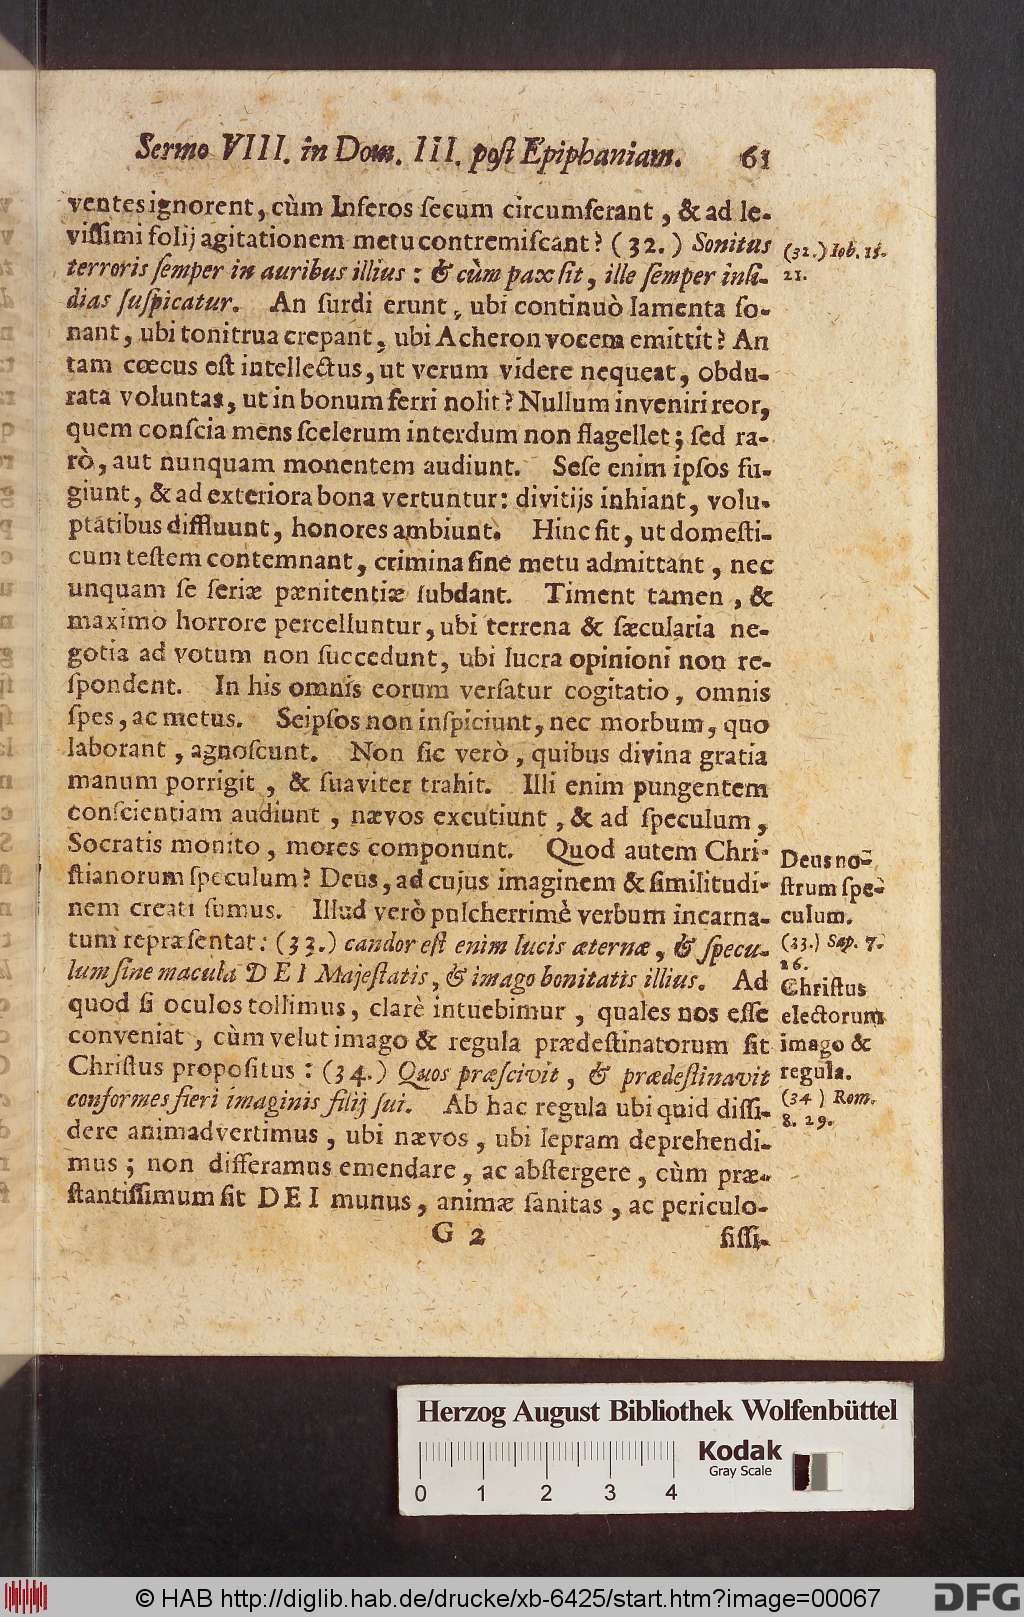 Sermo VIII. in Dom. III. poſt Epiphaniam. 61
ventes ignorent, cùm Inferos ſecum circumferant, & ad le-
viſſimi folij agitationem metu contremiſcant? (32.) Sonitus
terroris ſemper in auribus illius: & cùm pax ſit, ille ſemper inſi-
dias ſuſpicatur. An ſurdi erunt, ubi continuò lamenta ſo-
nant, ubi tonitrua crepant, ubi Acheron vocem emittit? An
tam cœcus eſt intellectus, ut verum videre nequeat, obdu-
rata voluntas, ut in bonum ferri nolit? Nullum inveniri reor,
quem conſcia mens ſcelerum interdum non flagellet; ſed ra-
rò, aut nunquam monentem audiunt. Seſe enim ipſos fu-
giunt, & ad exteriora bona vertuntur: divitijs inhiant, volu-
ptatibus diffluunt, honores ambiunt. Hinc fit, ut domeſti-
cum teſtem contemnant, crimina ſine metu admittant, nec
unquam ſe ſeriæ pænitentiæ ſubdant. Timent tamen, &
maximo horrore percelluntur, ubi terrena & ſæcularia ne-
gotia ad votum non ſuccedunt, ubi lucra opinioni non re-
ſpondent. In his omnis eorum verſatur cogitatio, omnis
ſpes, ac metus. Seipſos non inſpiciunt, nec morbum, quo
laborant, agnoſcunt. Non ſic verò, quibus divina gratia
manum porrigit, & ſuaviter trahit. Illi enim pungentem
conſcientiam audiunt, nævos excutiunt, & ad ſpeculum,
Socratis monito, mores componunt. Quod autem Chri-
ſtianorum ſpeculum? Deus, ad cujus imaginem & ſimilitudi-
nem creati ſumus. Illud verò pulcherrimè verbum incarna-
tum repræſentat: (33.) candor eſt enim lucis æternæ, & ſpecu-
lum ſine macula DEI Majeſtatis, & imago bonitatis illius. Ad
quod ſi oculos tollimus, clarè intuebimur, quales nos eſſe
conveniat, cùm velut imago & regula prædeſtinatorum ſit
Chriſtus propoſitus: (34.) Quos præſcivit, & prædeſtinavit
conformes fieri imaginis filij ſui. Ab hac regula ubi quid diſſi-
dere animadvertimus, ubi nævos, ubi lepram deprehendi-
mus; non differamus emendare, ac abſtergere, cùm præ-
ſtantiſſimum ſit DEI munus, animæ ſanitas, ac periculo-
G 2 ſiſſi-
(32.) Iob. 15.
21.
Deus no-
ſtrum ſpe-
culum.
(33.) Sap. 7.
26.
Chriſtus
electorum
imago &
regula.
(34) Rom.
8. 29.
Herzog August Bibliothek Wolfenbüttel
Kodak
Gray Scale
0 1 2 3 4
© HAB http://diglib.hab.de/drucke/xb-6425/start.htm?image=00067
DFG